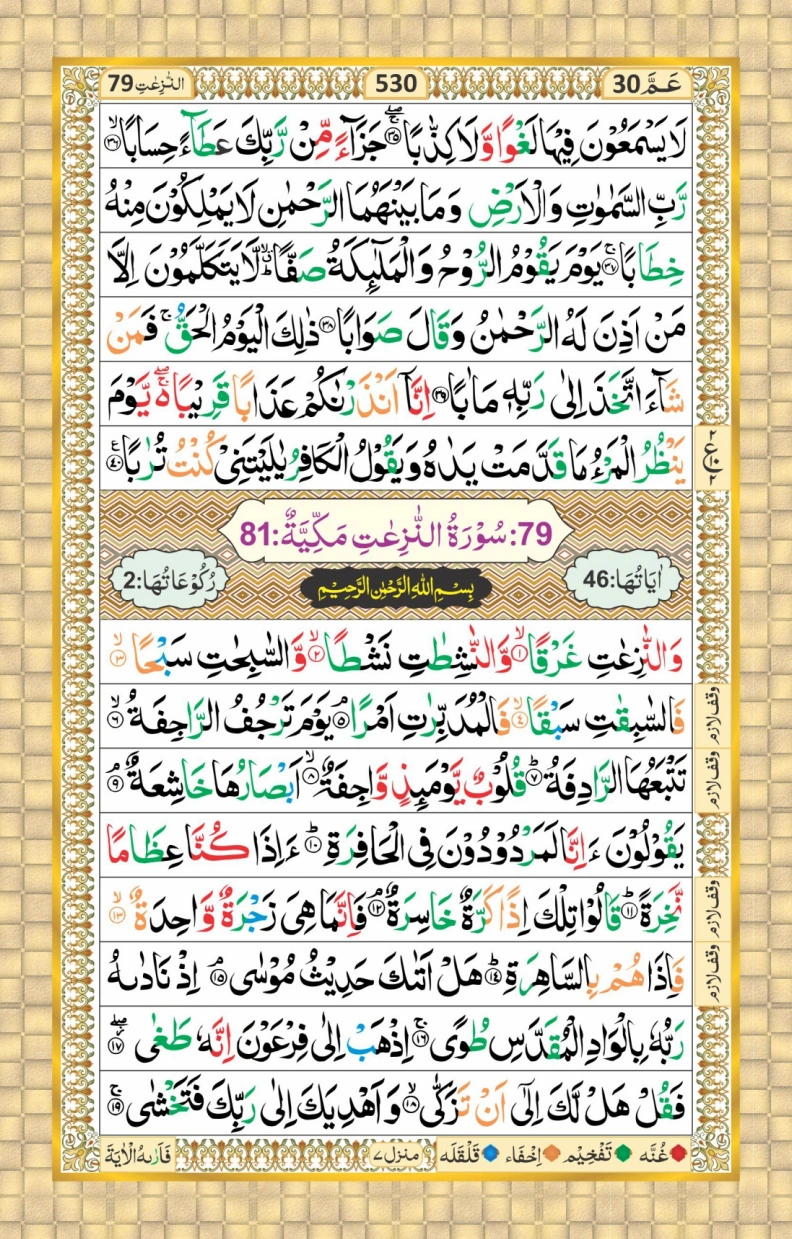 عَمَّ 30
530
النّٰزِعٰتِ 79
لَا يَسْمَعُوْنَ فِيْهَا لَغْوًا وَّلَا كِذّٰبًا ۚۖ۝۳۵ جَزَآءً مِّنْ رَّبِّكَ عَطَآءً حِسَابًا ۙ۝۳۶
رَّبِّ السَّمٰوٰتِ وَالْاَرْضِ وَمَا بَيْنَهُمَا الرَّحْمٰنِ لَا يَمْلِكُوْنَ مِنْهُ
خِطَابًا ۚ۝۳۷ يَوْمَ يَقُوْمُ الرُّوْحُ وَالْمَلٰٓئِكَةُ صَفًّا ۙۗ لَّا يَتَكَلَّمُوْنَ اِلَّا
مَنْ اَذِنَ لَهُ الرَّحْمٰنُ وَقَالَ صَوَابًا ۝۳۸ ذٰلِكَ الْيَوْمُ الْحَقُّ ۚ فَمَنْ
شَآءَ اتَّخَذَ اِلٰى رَبِّهٖ مَاٰبًا ۝۳۹ اِنَّاۤ اَنْذَرْنٰكُمْ عَذَابًا قَرِيْبًا ۚۖ۬ يَّوْمَ
يَنْظُرُ الْمَرْءُ مَا قَدَّمَتْ يَدٰهُ وَيَقُوْلُ الْكَافِرُ يٰلَيْتَنِيْ كُنْتُ تُرٰبًا ۧ۝۴۰
79: سُوْرَةُ النّٰزِعٰتِ مَكِّيَّةٌ :81
اٰيَاتُهَا:46
بِسْمِ اللّٰهِ الرَّحْمٰنِ الرَّحِيْمِ
رُكُوْعَاتُهَا:2
وَالنّٰزِعٰتِ غَرْقًا ۙ۝۱ وَّالنّٰشِطٰتِ نَشْطًا ۙ۝۲ وَّالسّٰبِحٰتِ سَبْحًا ۙ۝۳
فَالسّٰبِقٰتِ سَبْقًا ۙ۝۴ فَالْمُدَبِّرٰتِ اَمْرًا ۘ۝۵ يَوْمَ تَرْجُفُ الرَّاجِفَةُ ۙ۝۶
وقف لازم
تَتْبَعُهَا الرَّادِفَةُ ؕ۝۷ قُلُوْبٌ يَّوْمَئِذٍ وَّاجِفَةٌ ۙ۝۸ اَبْصَارُهَا خَاشِعَةٌ ۘ۝۹
وقف لازم
يَقُوْلُوْنَ ءَاِنَّا لَمَرْدُوْدُوْنَ فِي الْحَافِرَةِ ؕ۝۱۰ ءَاِذَا كُنَّا عِظَامًا
نَّخِرَةً ؕ۝۱۱ قَالُوْا تِلْكَ اِذًا كَرَّةٌ خَاسِرَةٌ ۘ۝۱۲ فَاِنَّمَا هِيَ زَجْرَةٌ وَّاحِدَةٌ ۙ۝۱۳
وقف لازم
فَاِذَا هُمْ بِالسَّاهِرَةِ ؕ۝۱۴ هَلْ اَتٰىكَ حَدِيْثُ مُوْسٰى ۘ۝۱۵ اِذْ نَادٰىهُ
وقف لازم
رَبُّهٗ بِالْوَادِ الْمُقَدَّسِ طُوًى ۚ۝۱۶ اِذْهَبْ اِلٰى فِرْعَوْنَ اِنَّهٗ طَغٰى ۚۖ۝۱۷
فَقُلْ هَلْ لَّكَ اِلٰۤى اَنْ تَزَكّٰى ۙ۝۱۸ وَاَهْدِيَكَ اِلٰى رَبِّكَ فَتَخْشٰى ۚ۝۱۹
غُنَّه تَفْخِيْم اِخْفَاء قَلْقَلَه
منزل ۷
فَاَرٰىهُ الْاٰيَةَ